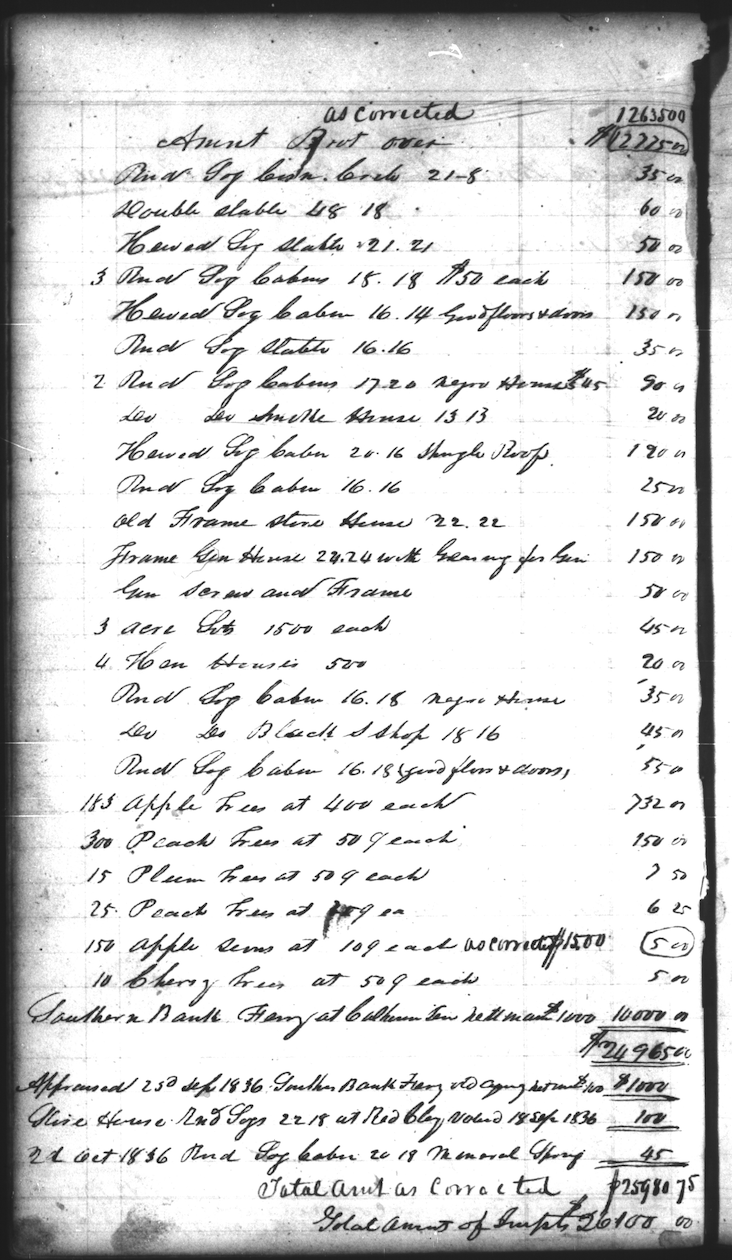 as corrected 1263500
Amnt Brot over $12725 00
Rnd Log Corn Crib 21-8 35 00
Double stable 48 18 60 00
Hewed Log stable 21. 21 50 00
3 Rnd Log Cabins 18. 18 $50 each 150 00
Hewed Log Cabin 16. 14 Good floors & doors 150 00
Rnd Log Stable 16.16 35 00
2 Rnd Log Cabins 17.20 negro House $45 90 00
Do Do Smoke House 13 13 20 00
Hewed Log Cabin 20.16 Shingle Roof 00
Rnd Log Cabin 16.16 25 00
old Frame store House 22.22 150 00
Frame Gin House 24.24 with Gearing for Gin 150 00
Gin Screw and Frame 50 00
3 acre Lots 1500 each 45 00
4 Hen Houses 500 20 00
Rnd Log Cabin 16.18 negro House 35 00
Do Do Black S Shop 18 16 45 00
Rnd Log Cabin 16.18 (good floors & doors) 55 00
183 Apple Trees at 400 each 732 00
300 Peach Trees at 50 ¢ each 150 00
15 Plum Trees at 50 ¢ each 7 50
25 Peach Trees at ¢ ea 6 25
150 Apple at 10 ¢ each as corrected $1500 5 00
10 Cherry Trees at 50 ¢ each 5 00
Southern Bank Ferry at Calhoun Ten $1000 10000 00
$24965 00
Appraised 23d Sep 1836 Southern Bank Ferry $100 $1000
House Rnd Logs 22 18 at Red Clay Valued 18 Sep 1836 100
2d Oct 1836 Rnd Log Cabin 20 18 Mineral Spring 45
Total Amt as Corrected $25980 75
Total Amnt of Impts $26100 00